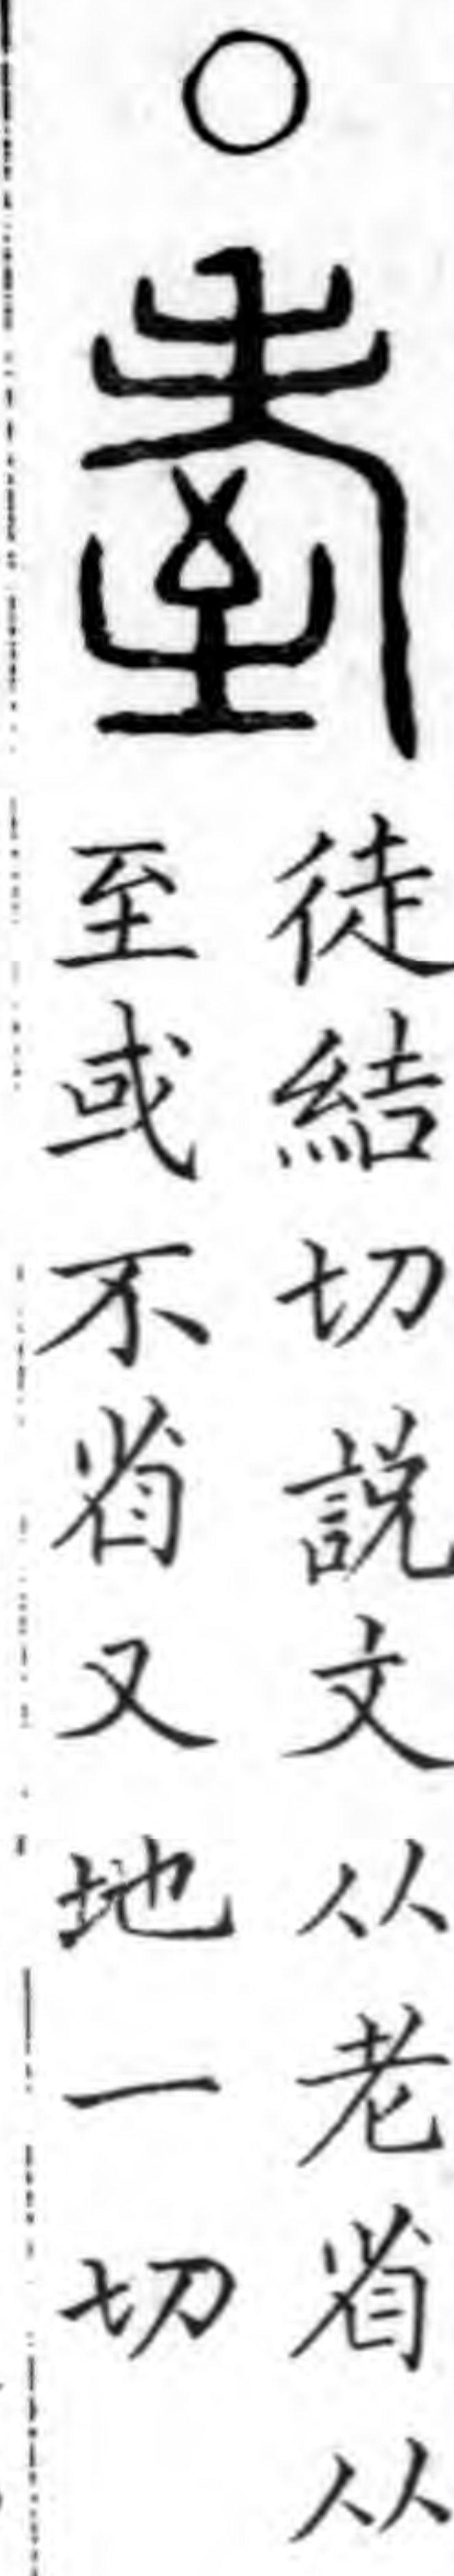 ○耋
徒結切說文从老省从
至或不省又地一切